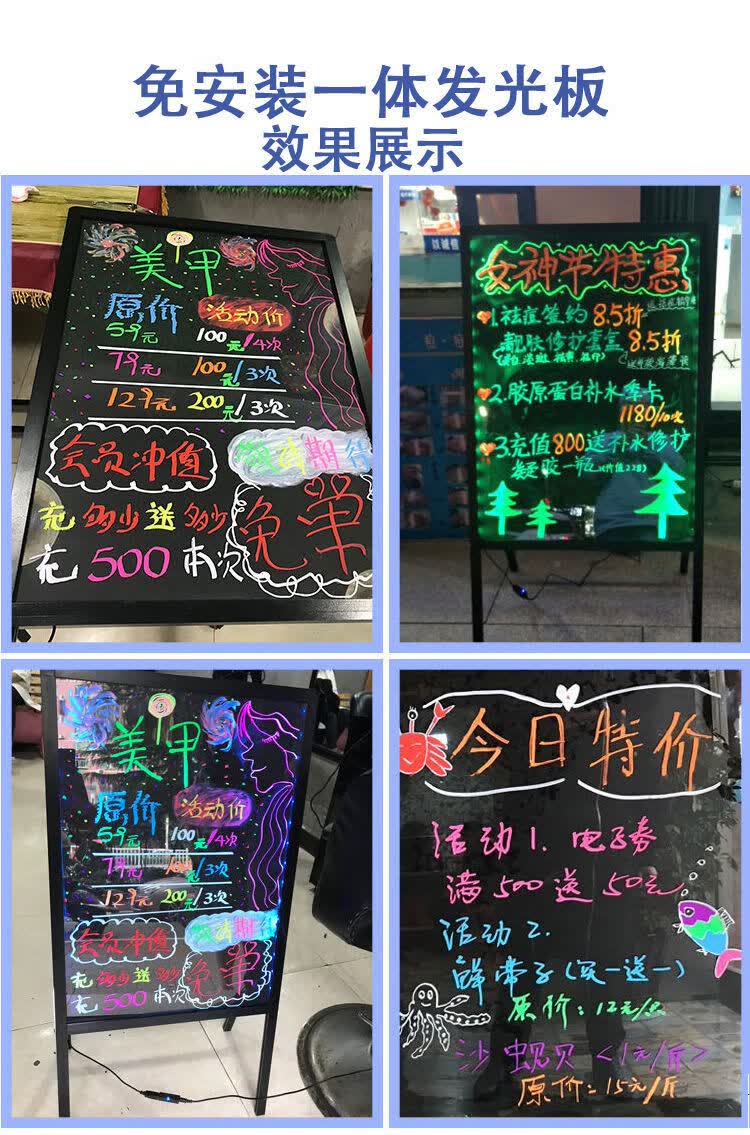 免安装一体发光板
效果展示
美甲
原价 活动价
59元 100元/4次
79元 100元/3次
129元 200元/3次
会员冲值
敬请期待
充多少送多少
充500本次
免单
女神节特惠
1.祛痘签约8.5折
靓肤修护套盒8.5折
2.胶原蛋白补水季卡
1180/10次
3.充值800送补水修护
凝胶一瓶
美甲
原价 活动价
59元 100元/4次
79元 100元/3次
129元 200元/3次
会员冲值
敬请期待
充多少送多少
充500本次
免单
今日特价
活动1.电子券
满500送50元
活动2.
鲜带子(买一送一)
原价:12元/只
沙蚬贝<1元/斤>
原价:15元/斤